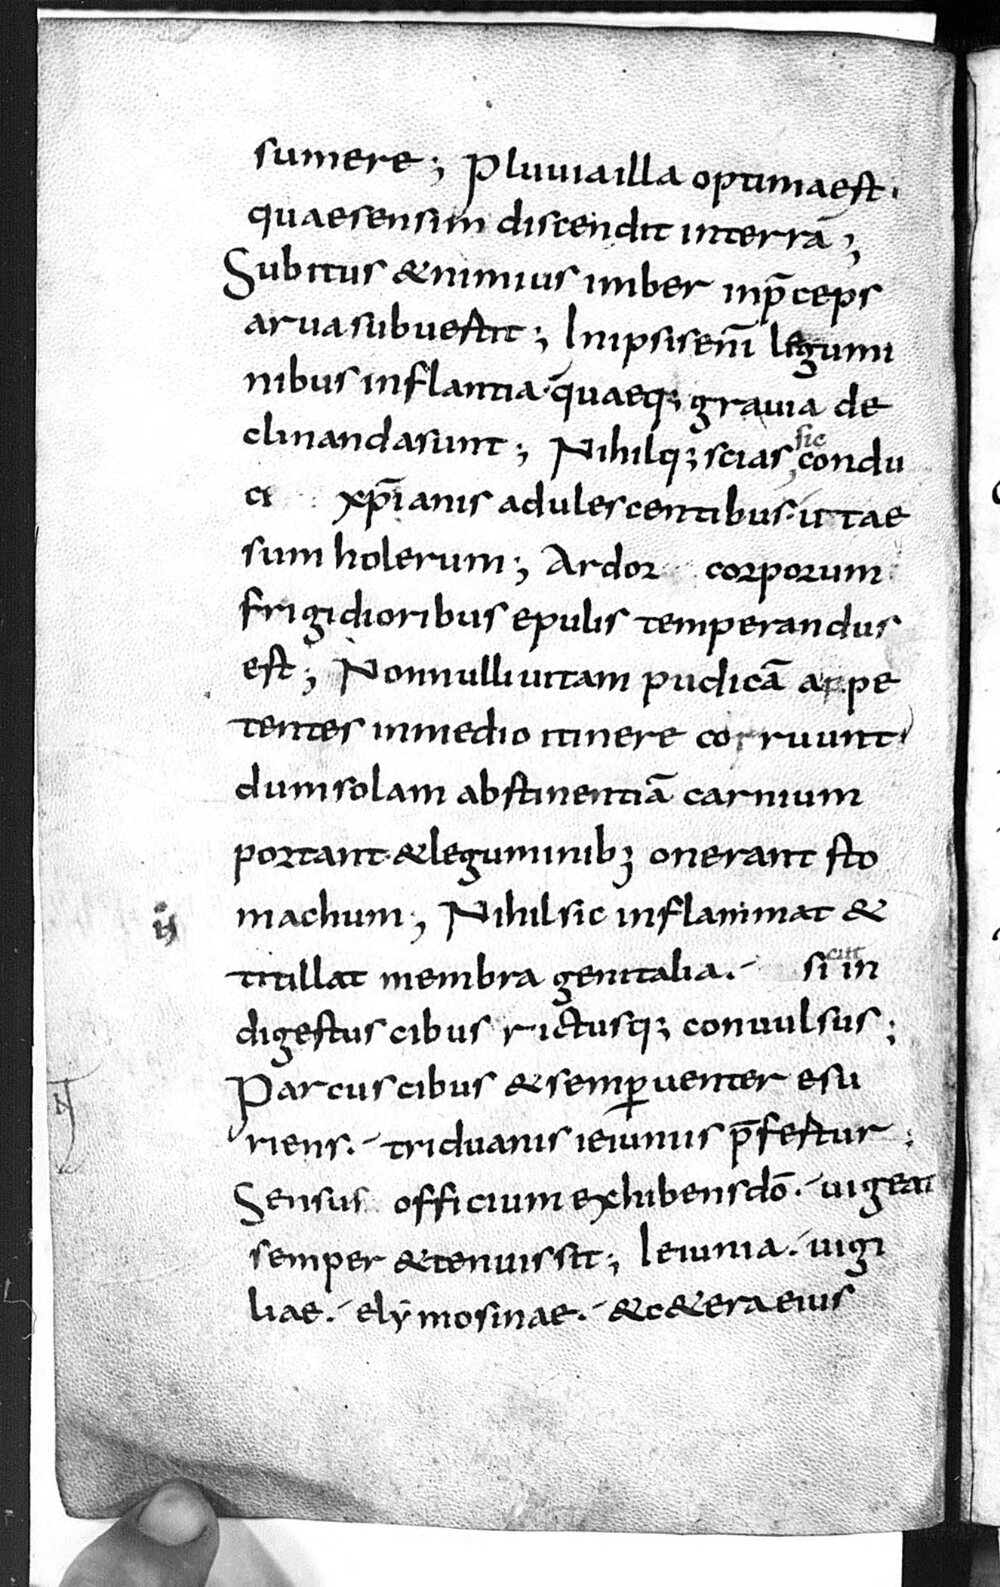 sumere; Pluuia illa optima est.
quae sensim discendit in terrā;
Subitus & nimius imber in p̄ceps
arua subuertit; In ipsis enī legumi
nibus inflantia. quaeq; grauia de
clinanda sunt; Nihilq; scias sic condu
ci xp̄ianis adulescentibus. ut ae
sum holerum; Ardor corporum
frigidioribus epulis temperandus
est; Nonnulli uitam pudicā appe
tentes in medio itinere corruunt.
dum solam abstinentiā carnium
portant. & leguminib; onerant sto
machum; Nihil sic inflammat &
titillat membra genitalia. sicut in
digestus cibus rictusq; conuulsus;
Parcus cibus & semp̱ uenter esu
riens. triduanis ieiuniis p̄fertur;
Sensus officium exhibens dō. uigeat
semper & tenuis sit; Ieiunia. uigi
liae. elymosinae. & c&era eius